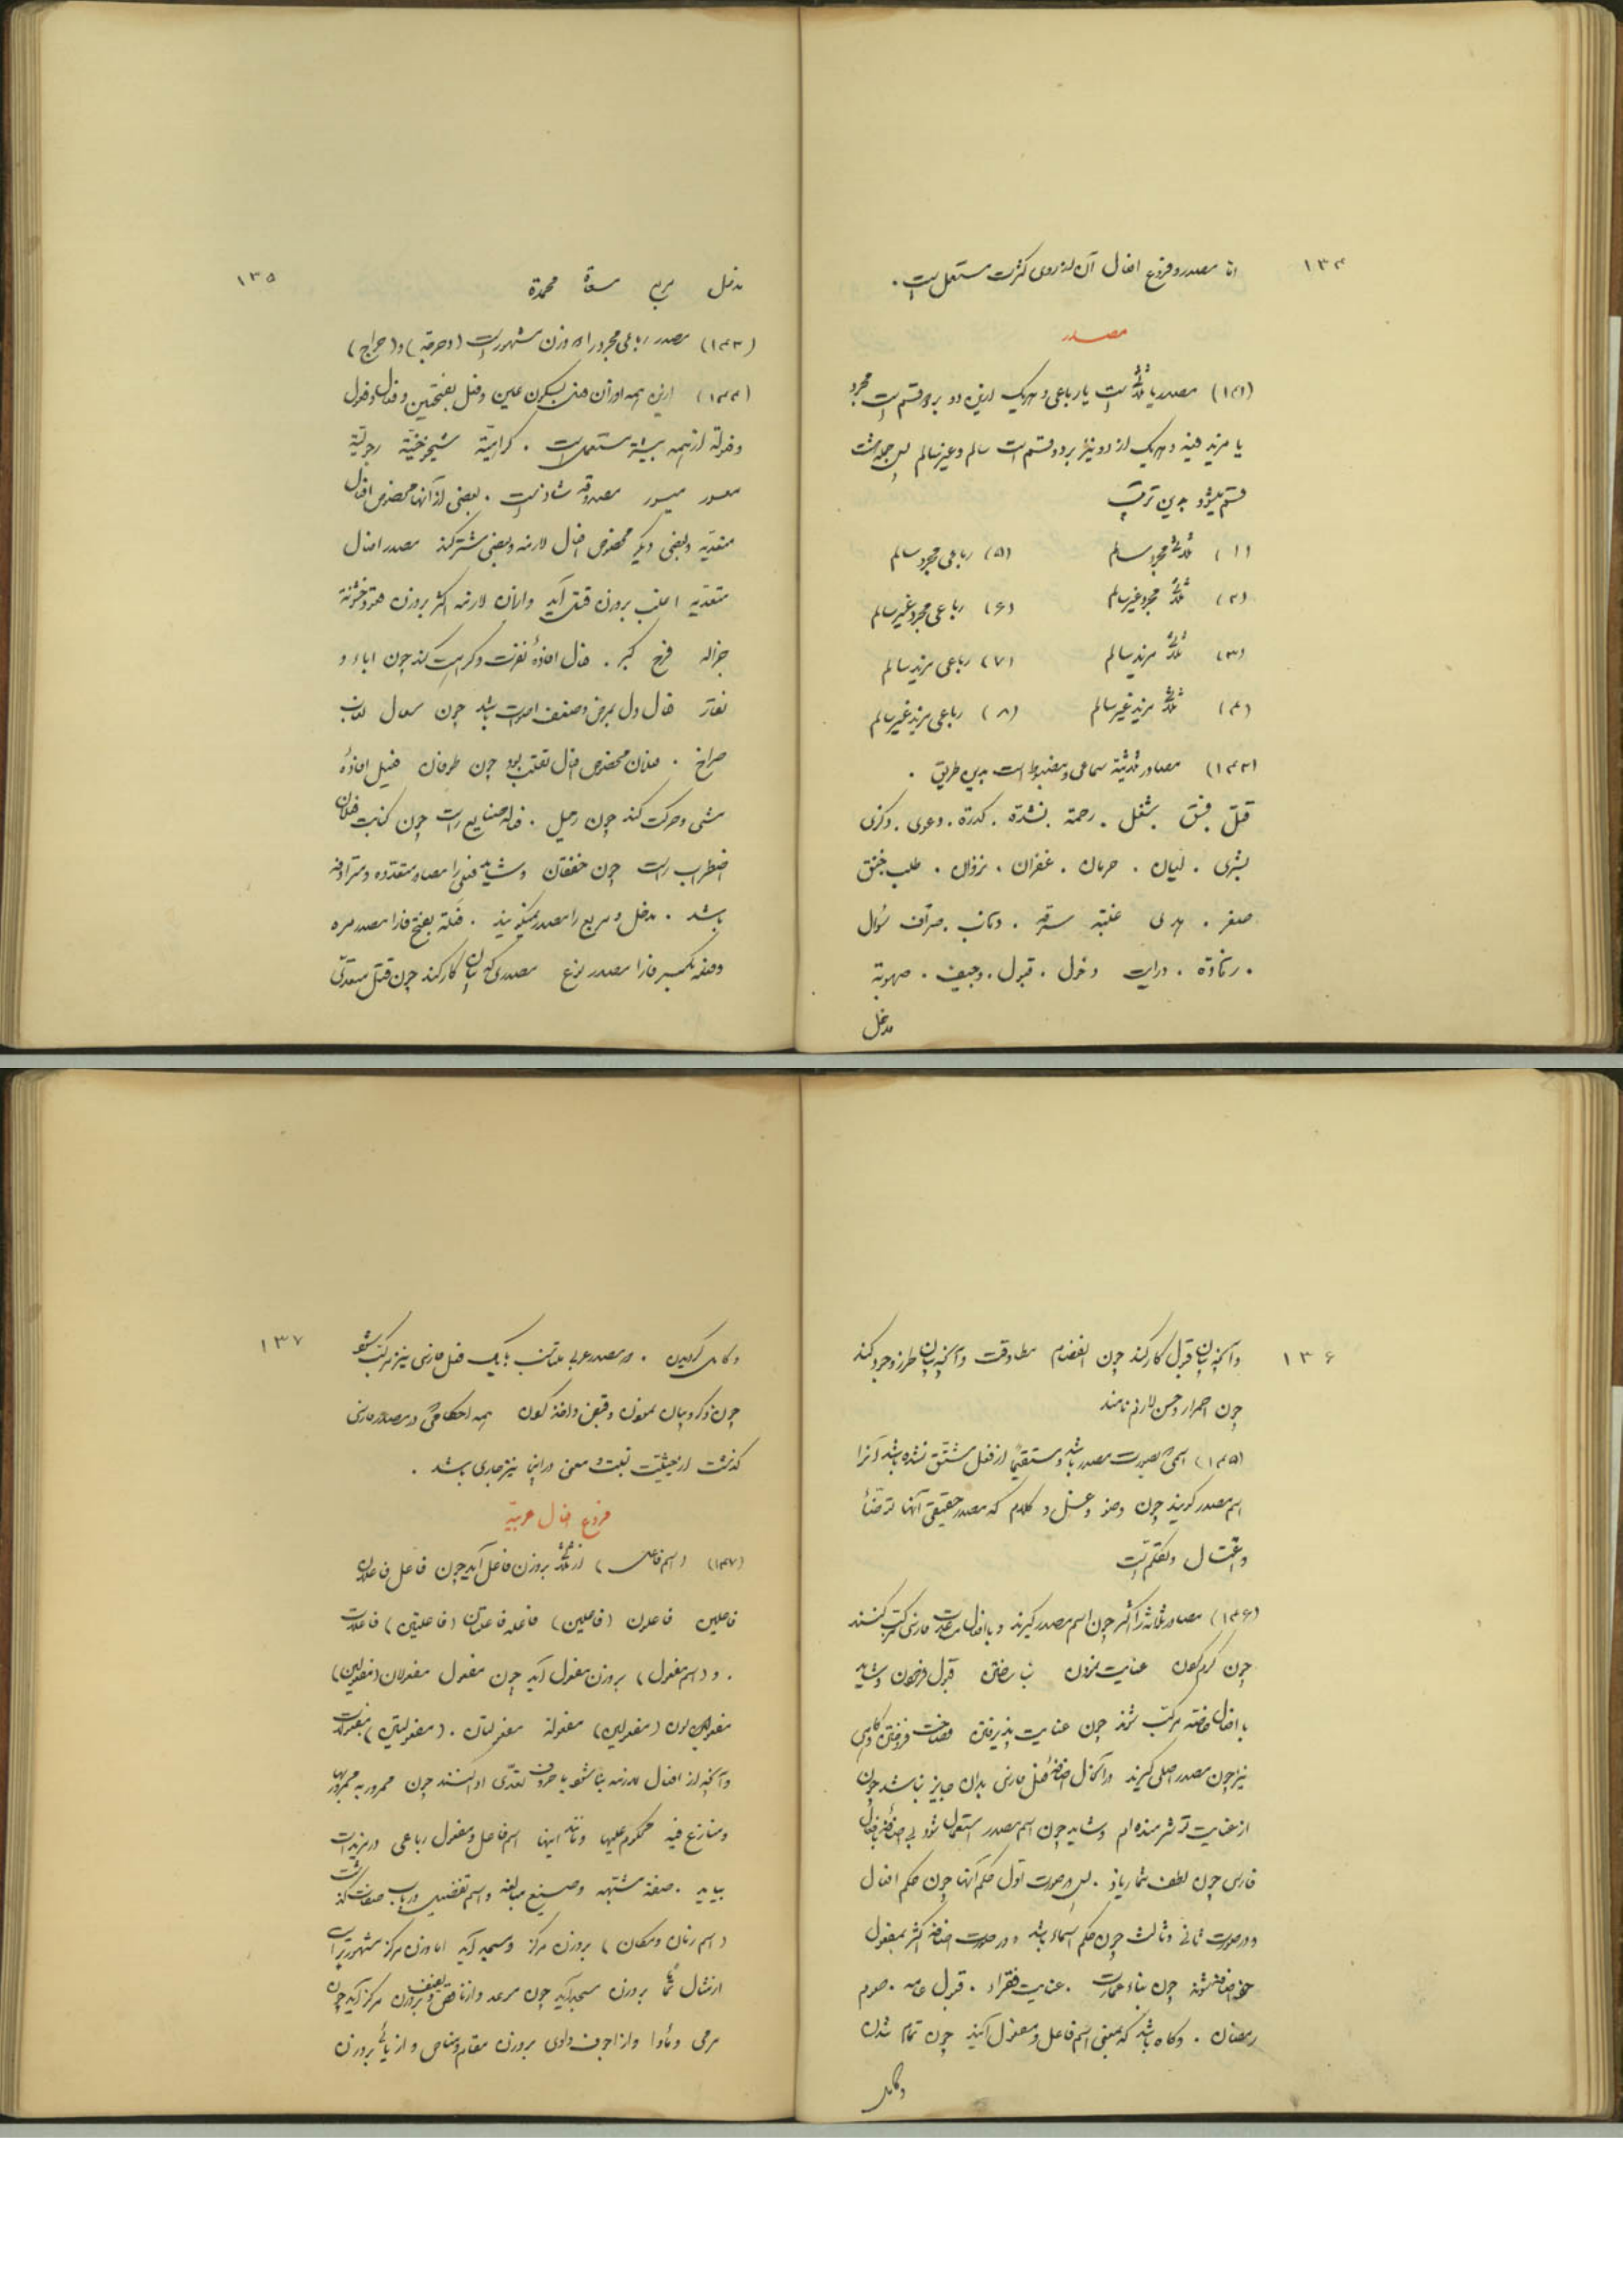 ۱۳۴
اما مصدر و فروع افعال آن از روی کثرت مستعمل است .
مصدر
(۱۴۱) مصدر یا ثلاثی است یا رباعی و هریک ازین دو بر دو قسم است مجرد
یا مزید فیه و هریک از دو نیز بر دو قسم است سالم و غیر سالم پس جمله هشت
قسم میشود بدین ترتیب
(۱) ثلاثی مجرد سالم (۵) رباعی مجرد سالم
(۲) ثلاثی مجرد غیر سالم (۶) رباعی مجرد غیر سالم
(۳) ثلاثی مزید سالم (۷) رباعی مزید سالم
(۴) ثلاثی مزید غیر سالم (۸) رباعی مزید غیر سالم
(۱۴۲) مصادر ثلاثیه سماعی و مضبوط است بدین طریق .
قتل فسق شغل . رحمة نشدة . کدرة . دعوی . ذکری
بشری . لیان . حرمان . غفران . نزوان . طلب خنق
صغر . هدی غلبة سرقة . ذهاب . صراف سؤال
. زهادة . درایت دخول . قبول . وجیف . صهوبة
مدخل
۱۳۵
مدخل مرجع مسعاة محمدة
(۱۴۳) مصدر رباعی مجرد را دو وزن مشهور است (دحرجة) و (دحراج)
(۱۴۴) ازین همه اوزان فعل بسکون عین و فعل بفتحتین و فعال و فعول
و فعولة از همه بیشتر مستعمل است . کراهیّة شیخوخیّة رجولیّة
معسور میسور مصدوقه شاذ است . بعضی از آنها مخصوص افعال
متعدّیه و بعضی دیگر مخصوص افعال لازمه و بعضی مشترکند مصدر افعال
متعدّیه اغلب بر وزن قتل آید و از آن لازمه اکثر بر وزن قعود خشونة
جزاله فرح کبر . فعال افادۀ نفرت و کراهت کند چون اباء و
نفار فعال دال بمرض و ضعف اصوات باشد چون سعال لعاب
صراخ . فعلان مخصوص افعال تقلب بود چون طوفان فعیل افادۀ
مشی و حرکت کند چون رحیل . فعاله صنایع راست چون کتابت فعلان
اضطراب راست چون خفقان و شاید فعلی را مصادر متعدده و مترادفه
باشد . مدخل و مرجع را مصدر میمی گویند . فَعلة بفتح فا را مصدر مره
و فعله بکسر فا را مصدر نوع مصدری که بیان کار کند چون قتل متعدّی
۱۳۶
و آنچه بیان قبول کار کند چون انفصام مطاوعت و آنچه بیان طرز وجود کند
چون احمرار و حسن لازم نامند
(۱۴۵) اسمی که بصورت مصدر باشد و مستقیماً از فعل مشتق نشده باشد آنرا
اسم مصدر گویند چون وضو و غسل و کلام که مصدر حقیقی آنها توضّأ
و اغتسال و تکلم است
(۱۴۶) مصادر ثلاثه را اکثر چون اسم مصدر گیرند و با افعال معاونت فارسی مرکب کنند
چون کرم کردن عنایت نمودن بنا ساختن قبول فرمودن و شاید
با افعال خاصه مرکب شوند چون عنایت پذیرفتن فصاحت فروختن و گاهی
نیز چون مصدر اصلی گیرند در آنحال اضافۀ فعل فارسی بدان جایز نباشد چون
از عنایت تو شرمنده ام و شاید چون اسم مصدر استعمال شود بی اضافۀ افعال
فارسی چون لطف شما زیاد . پس در صورت اول حکم آنها چون حکم افعال
و در صورت ثانی و ثالث چون حکم اسماء باشد و در صورت اضافه اکثر بمفعول
خود اضافه شوند چون بناء عمارت . عنایت فقراء . قبول عامه . صوم
رمضان . و گاه باشد که بمعنی اسم فاعل و مفعول آیند چون تمام شدن
و کامل
۱۳۷
و کامل گردیدن . در مصدر عربی مناسب با یک فعل فارسی نیز مرکب شود
چون ذکر و بیان نمودن و قبض و اخذ کردن همه احکامی که در مصدر فارسی
گذشت از حیثیت نسبت و معنی در اینجا نیز جاری باشد .
فروع افعال عربیّه
(۱۴۷) (اسم فاعل) از ثلاثی بر وزن فاعل آید چون فاعل فاعلان
فاعلین فاعلون (فاعلین) فاعله فاعلتان (فاعلتین) فاعلات
. و (اسم مفعول) بر وزن مفعول آید چون مفعول مفعولان (مفعولین)
مفعولون (مفعولین) مفعولة مفعولتان . (مفعولتین) مفعولات
و آنچه از افعال لازمه بنا شود با حروف تعدّی ادا کنند چون ممرور به ممرور بها
و متنازع فیه محکوم علیها و مانند اینها اسم فاعل و مفعول رباعی در مزیدات
بیاید . صفة مشبهه و صیغ مبالغه و اسم تفضیل در باب صفات گذشت
(اسم زمان و مکان) بر وزن مرکز و مسجد آید اما وزن مرکز مشهورتر است
از مثال بر وزن مسجد آید چون موعد و از ناقص و لفیف بر وزن مرکز آید چون
مرمی و مأوا و از اجوف واوی بر وزن مقام و مناص و از یائی بر وزن